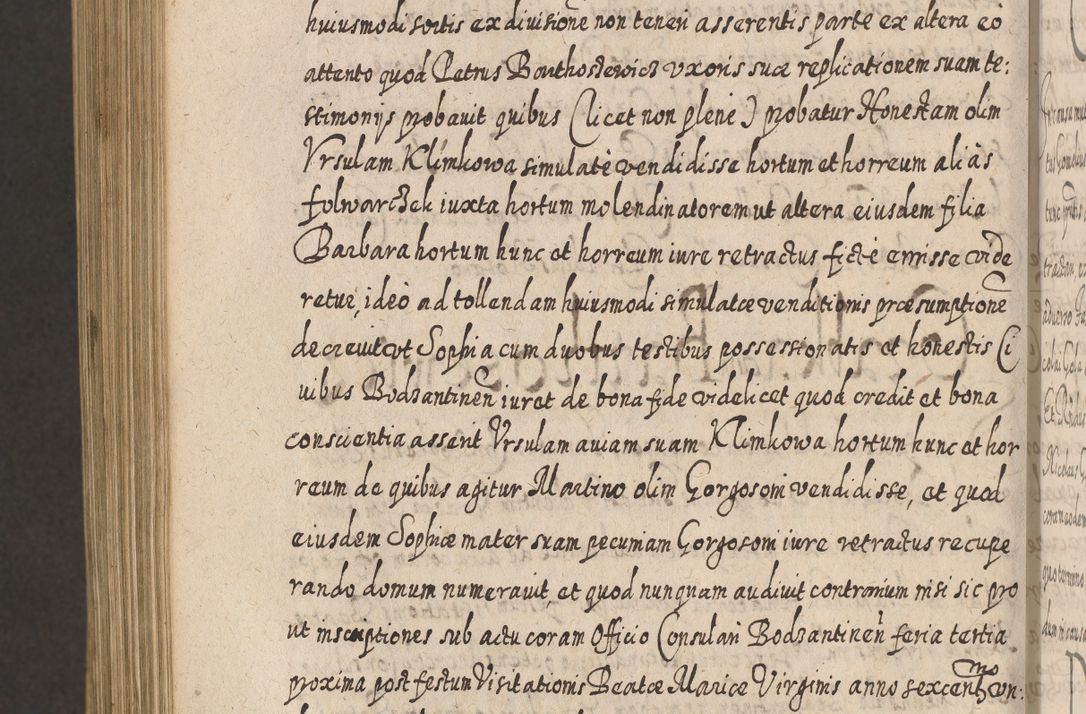 huiusmodi sortis ex divisione non teneri asserentis parte ex altera eò
attento quod Petrus Barthoszewicz uxoris suæ replicationem suam te:
stimonijs probavit quibus (licet non plene) probatur Honestam olim
Vrsulam Klimkowa simulatè vendidisse hortum et horreum aliàs
folwarczek iuxta hortum molendinatorem ut altera eiusdem filia
Barbara hortum hunc et horreum iure retractus fictè emisse vide
retur, ideò ad tollendam huiusmodi simulatæ venditionis præsumptione
decrevit ut Sophia cum duobus testibus possessionatis et honestis Ci
vibus Bodzantinen iuret de bona fide videlicet quod credit et bona
conscientia asserit Vrsulam aviam suam Klimkowa hortum hunc et hor
reum de quibus agitur Martino olim Gorgosoni vendidisse, et quod
eiusdem Sophiæ mater suam pecuniam Gorgosoni iure retractus recupe
rando domum numeravit, et quod nunquam audivit contrarium nisi sic pro
ut inscriptiones sub actu coram Officio Consulari Bodzantinen feria tertia
proxima post festum Visitationis Beatæ Mariæ Virginis anno sexcentmo un: